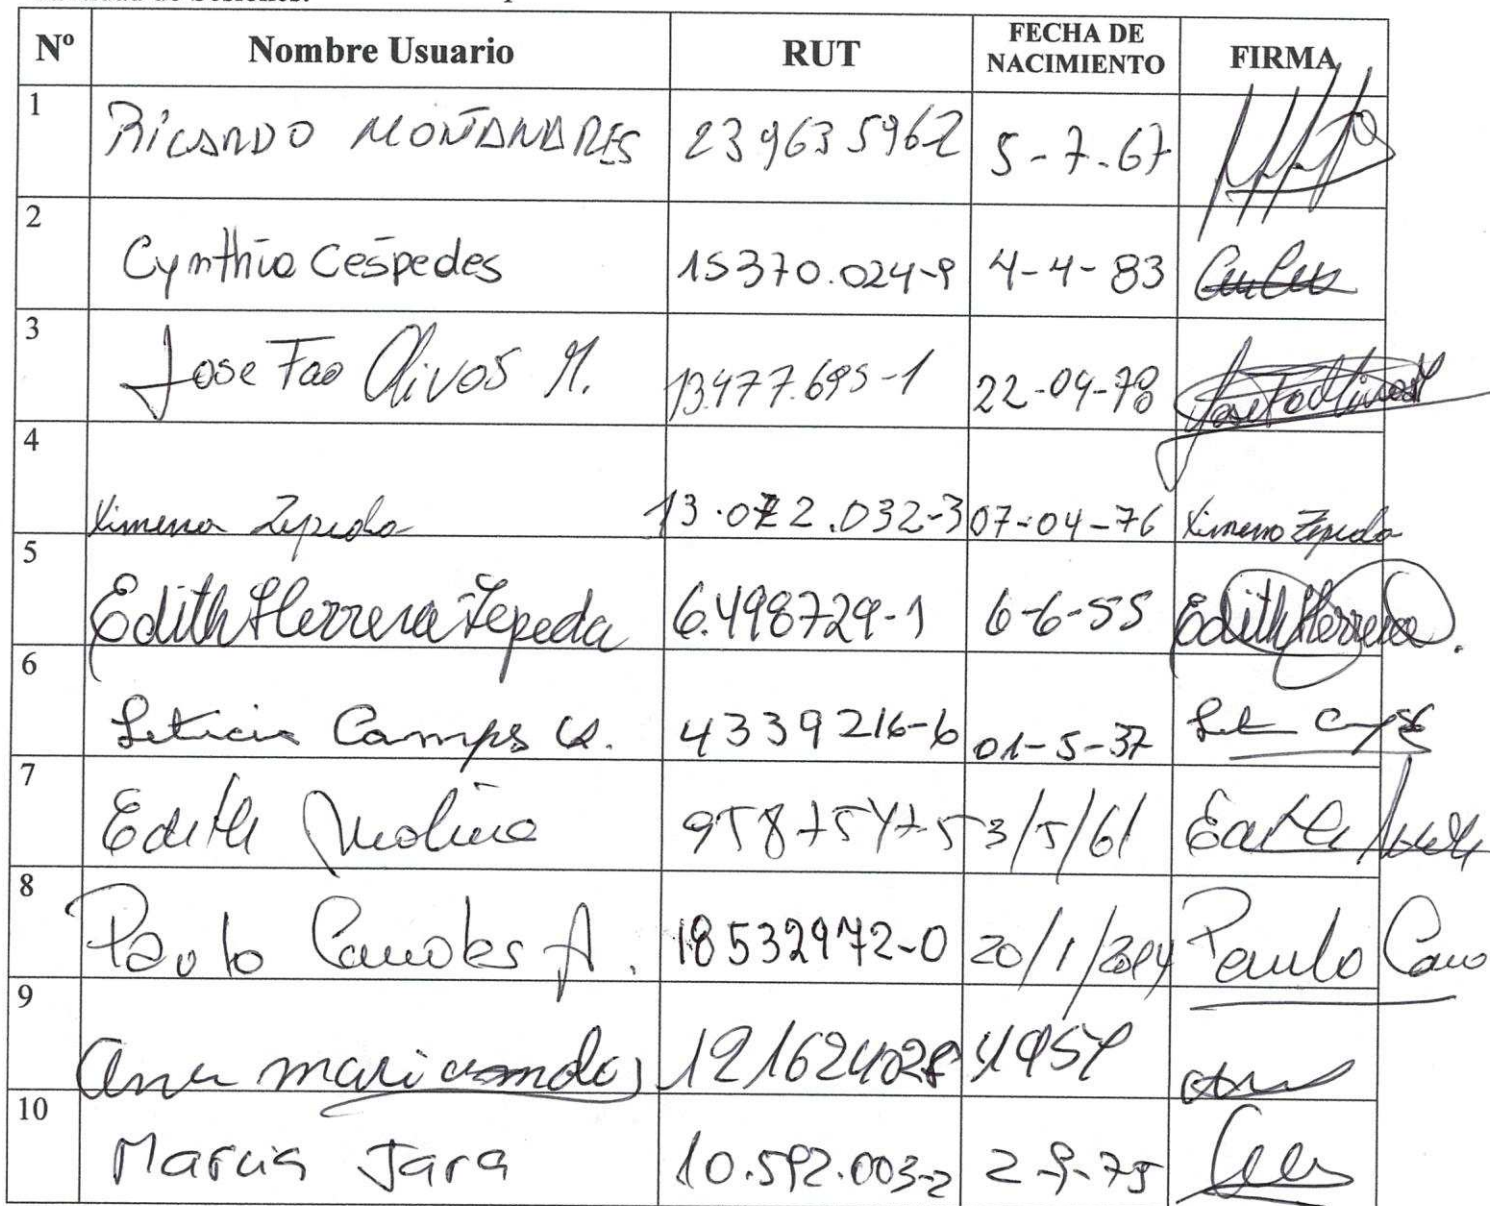 Nº Nombre Usuario RUT FECHA DE NACIMIENTO FIRMA
1 RICARDO MONTANARES 239635962 5-7-67
2 Cynthia Cespedes 15370.024-9 4-4-83
3 Jose Fco Olivos M. 13.477.695-1 22-04-78
4 Ximena Zepeda 13.072.032-3 07-04-76 Ximena Zepeda
5 Edith Herrera Zepeda 6.498729-1 6-6-55 Edith Herrera.
6 Leticia Camps 4339216-6 01-5-37
7 Edith Molina 95875475 3/5/61 Edith
8 Paulo A. 18532972-0 20/1/ Paulo
9 Ana 
10 Marcia Jara 10.592.003-2 2-9-75